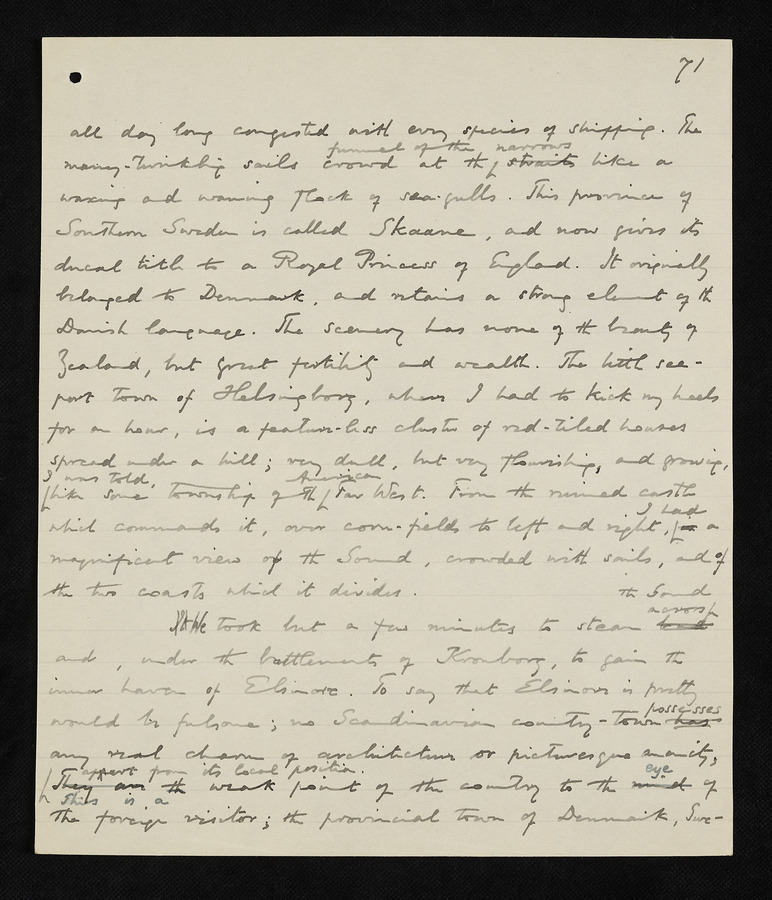 71
all day long congested with every species of shipping. The
funnel of the narrows
many-twinkling sails crowd at the straits like a
waxing and waning flock of sea-gulls. This province of
Southern Sweden is called Skaane, and now gives its
ducal title to a Royal Princess of England. It originally
belonged to Denmark, and retains a strong element of the
Danish language. The scenery has none of the beauty of
Zealand, but great fertility and wealth. The little sea-
port town of Helsingborg, where I had to kick my heels
for an hour, is a feature-less cluster of red-tiled houses
spread under a hill; very dull, but very flourishing, and growing,
I was told, American
like some township of the Far West. From the ruined castle
I had
which commands it, over corn-fields to left and right, a
magnificent view of the Sound, crowded with sails, and of
the two coasts which it divides.
the Sound
across
It We took but a few minutes to steam
and, under the battlements of Kronborg, to gain the
inner haven of Elsinore. To say that Elsinore is pretty
possesses
would be fulsome; no Scandinavian country-town has
any real charm of architecture or picturesque amenity,
apart from its local position. eye
They are the weak point of the country to the mind of
This is a
the foreign visitor; the provincial town of Denmark, Swe-